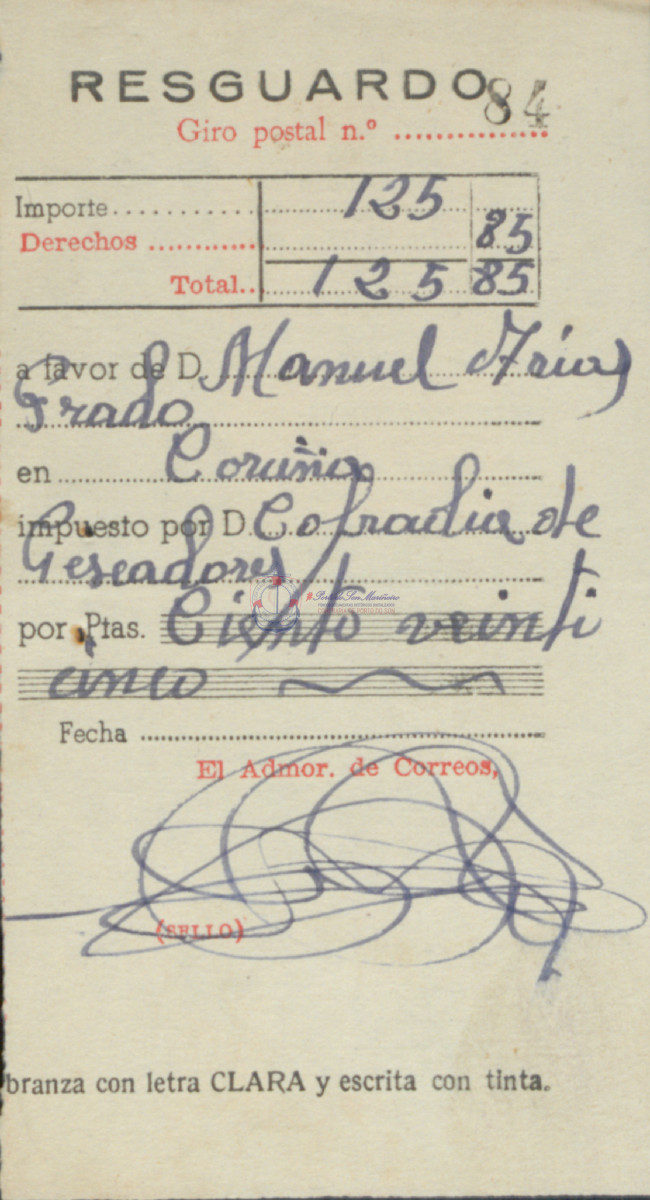 RESGUARDO
Giro postal n.º 84
Importe 125
Derechos 85
Total.. 125 85
a favor de D. Manuel Arias
Prado
en Coruña
impuesto por D. Cofradia de
Pescadores
por Ptas. Ciento veinti
cinco
Fecha
El Admor. de Correos,
(SELLO)
branza con letra CLARA y escrita con tinta.